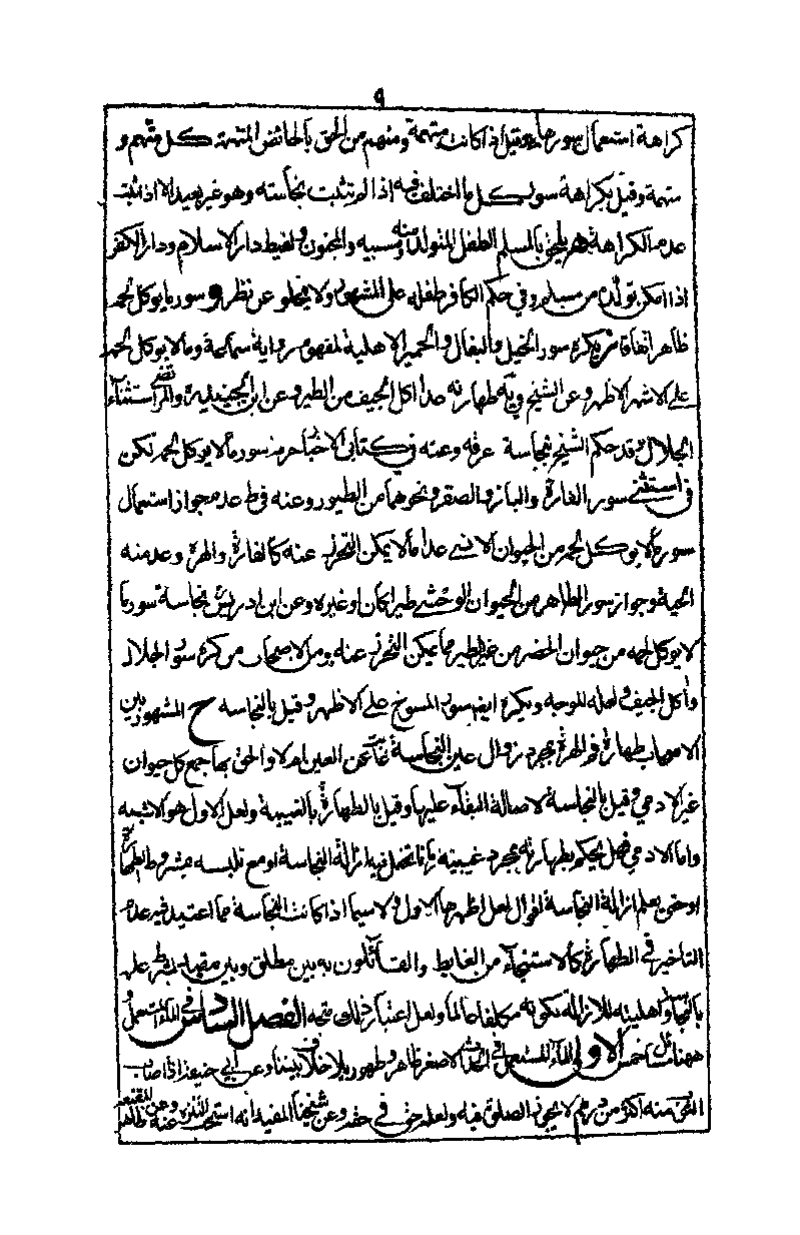 ٩
كراهة استعمال سورها وقيل اذا كانت متهمة ومنهم من الحق بالحائض المتهمة كل متهم و
متهمة وقيل بكراهة سور كل ما اختلف فيه اذا لم تثبت نجاسته وهو غير بعيد الا اذا ثبت
عدم الكراهة يلحق بالمسلم الطفل المتولد منه ومسبيه والمجنون ولقيط دار الاسلام ودار الكفر
اذا امكن تولده من مسلم وفي حكم الكافر طفله على المشهور ولا يخلو عن نظر و سور ما يوكل لحمه
طاهر اتفاقا ويكره سور الخيل والبغال والحمير الاهلية لمفهوم رواية سماعة وما لا يوكل لحمه
على الاشهر الاظهر وعن الشيخ طهارته عدا اكل الجيف من الطير وعن ابن الجنيد والمرتضى استثناء
الجلال وقد حكم الشيخ بنجاسة عرقه وعنه في كتابي الاخبار سور ما لا يوكل لحمه لكن
في استثنى سور الفارة والبازي والصقر ونحوهما من الطيور وعنه في ط عدم جواز استعمال
سور ما لا يوكل لحمه من الحيوان الانسي عدا ما لا يمكن التحرز عنه كالفارة والهرة وعد منه
الحية وجواز سور الطاهر من الحيوان الوحشي طيرا كان او غيره وعن ابن ادريس نجاسة سور ما
لا يوكل لحمه من حيوان الحضر من غير الطير مما يمكن التحرز عنه ومن الاصحاب من كره سور الجلال
واكل الجيف ولعله للوجه ويكره ايضا سور المسوخ على الاظهر وقيل بالنجاسه ح المشهور بين
الاصحاب طهارة فم الهرة بمجرد زوال عين النجاسة غابت عن العين ام لا والحق بها جمع كل حيوان
غير الادمي وقيل بالنجاسة لاصالة البقاء عليها وقيل بالطهارة بالغيبة ولعل الاول هو الاشبه
واما الادمي فهل يحكم بطهارته بمجرد غيبته زمانا يحتمل فيه ازالة النجاسة او مع تلبسه بمشروط بالطهارة
او حتى يعلم ازالة النجاسة اقوال لعل اظهرها الاول ولا سيما اذا كانت النجاسة مما اعتيد فيه عدم
التاخير في الطهارة كالاستنجاء من الغايط والقائلون به بين مطلق وبين مقيد بشرط علمه
بالنجاسة واهليته للازالة بكونه مكلفا عالما ولعل اعتبار ذلك متجه الفصل السادس في الماء المستعمل و
ههنا مسائل خمس الاولى الماء المستعمل في الحدث الاصغر طاهر وطهور بلا خلاف بيننا وعن ابي حنيفة اذا اصاب
الثوب منه اكثر من درهم لا يجوز الصلوة فيه ولعله حتى في حقه وعن شيخنا المفيد انه استحب التنزه عنه وعن المقنعة